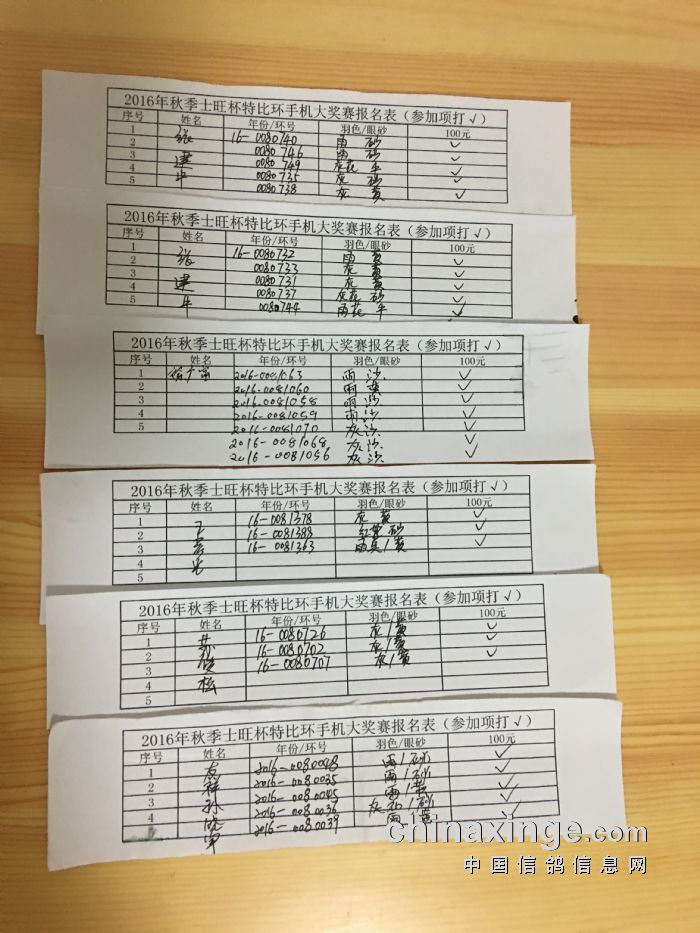 2016年秋季士旺杯特比环手机大奖赛报名表（参加项打√）
序号 姓名 年份/环号 羽色/眼砂 100元
1 张 16-0080740 雨 砂 √
2 0080746 雨 砂 √
3 建 0080749 灰花 牛 √
4 0080735 灰 砂 √
5 牛 0080738 灰 黄 √
2016年秋季士旺杯特比环手机大奖赛报名表（参加项打√）
序号 姓名 年份/环号 羽色/眼砂 100元
1 16-0080732 雨 黄 √
2 张 0080733 灰 黄 √
3 0080731 灰 黄 √
4 建 0080737 灰花 砂 √
5 牛 0080744 雨花 牛 √
2016年秋季士旺杯特比环手机大奖赛报名表（参加项打√）
序号 姓名 年份/环号 羽色/眼砂 100元
1 2016-0081063 雨 沙 √
2 2016-0081060 雨 黄 √
3 2016-0081058 雨 沙 √
4 2016-0081059 雨 沙 √
5 2016-0081070 灰 沙 √
2016-0081068 灰 沙 √
2016-0081056 灰 沙 √
2016年秋季士旺杯特比环手机大奖赛报名表（参加项打√）
序号 姓名 年份/环号 羽色/眼砂 100元
1 16-0081378 灰 黄 √
2 16-0081388 砂 √
3 16-0081363 黄 √
4
5
2016年秋季士旺杯特比环手机大奖赛报名表（参加项打√）
序号 姓名 年份/环号 羽色/眼砂 100元
1 16-0080726 灰/黄 √
2 16-0080702 灰/黄 √
3 16-0080707 灰/黄 √
4 松
5
2016年秋季士旺杯特比环手机大奖赛报名表（参加项打√）
序号 姓名 年份/环号 羽色/眼砂 100元
1 友 2016-0080048 雨/砂 √
2 祥 2016-0080035 雨/砂 √
3 孙 2016-0080045 雨/黄 √
4 晓 2016-0080036 灰 /砂 √
5 军 2016-0080039 雨/黄 √
chinaxinge.com
中国信鸽信息网